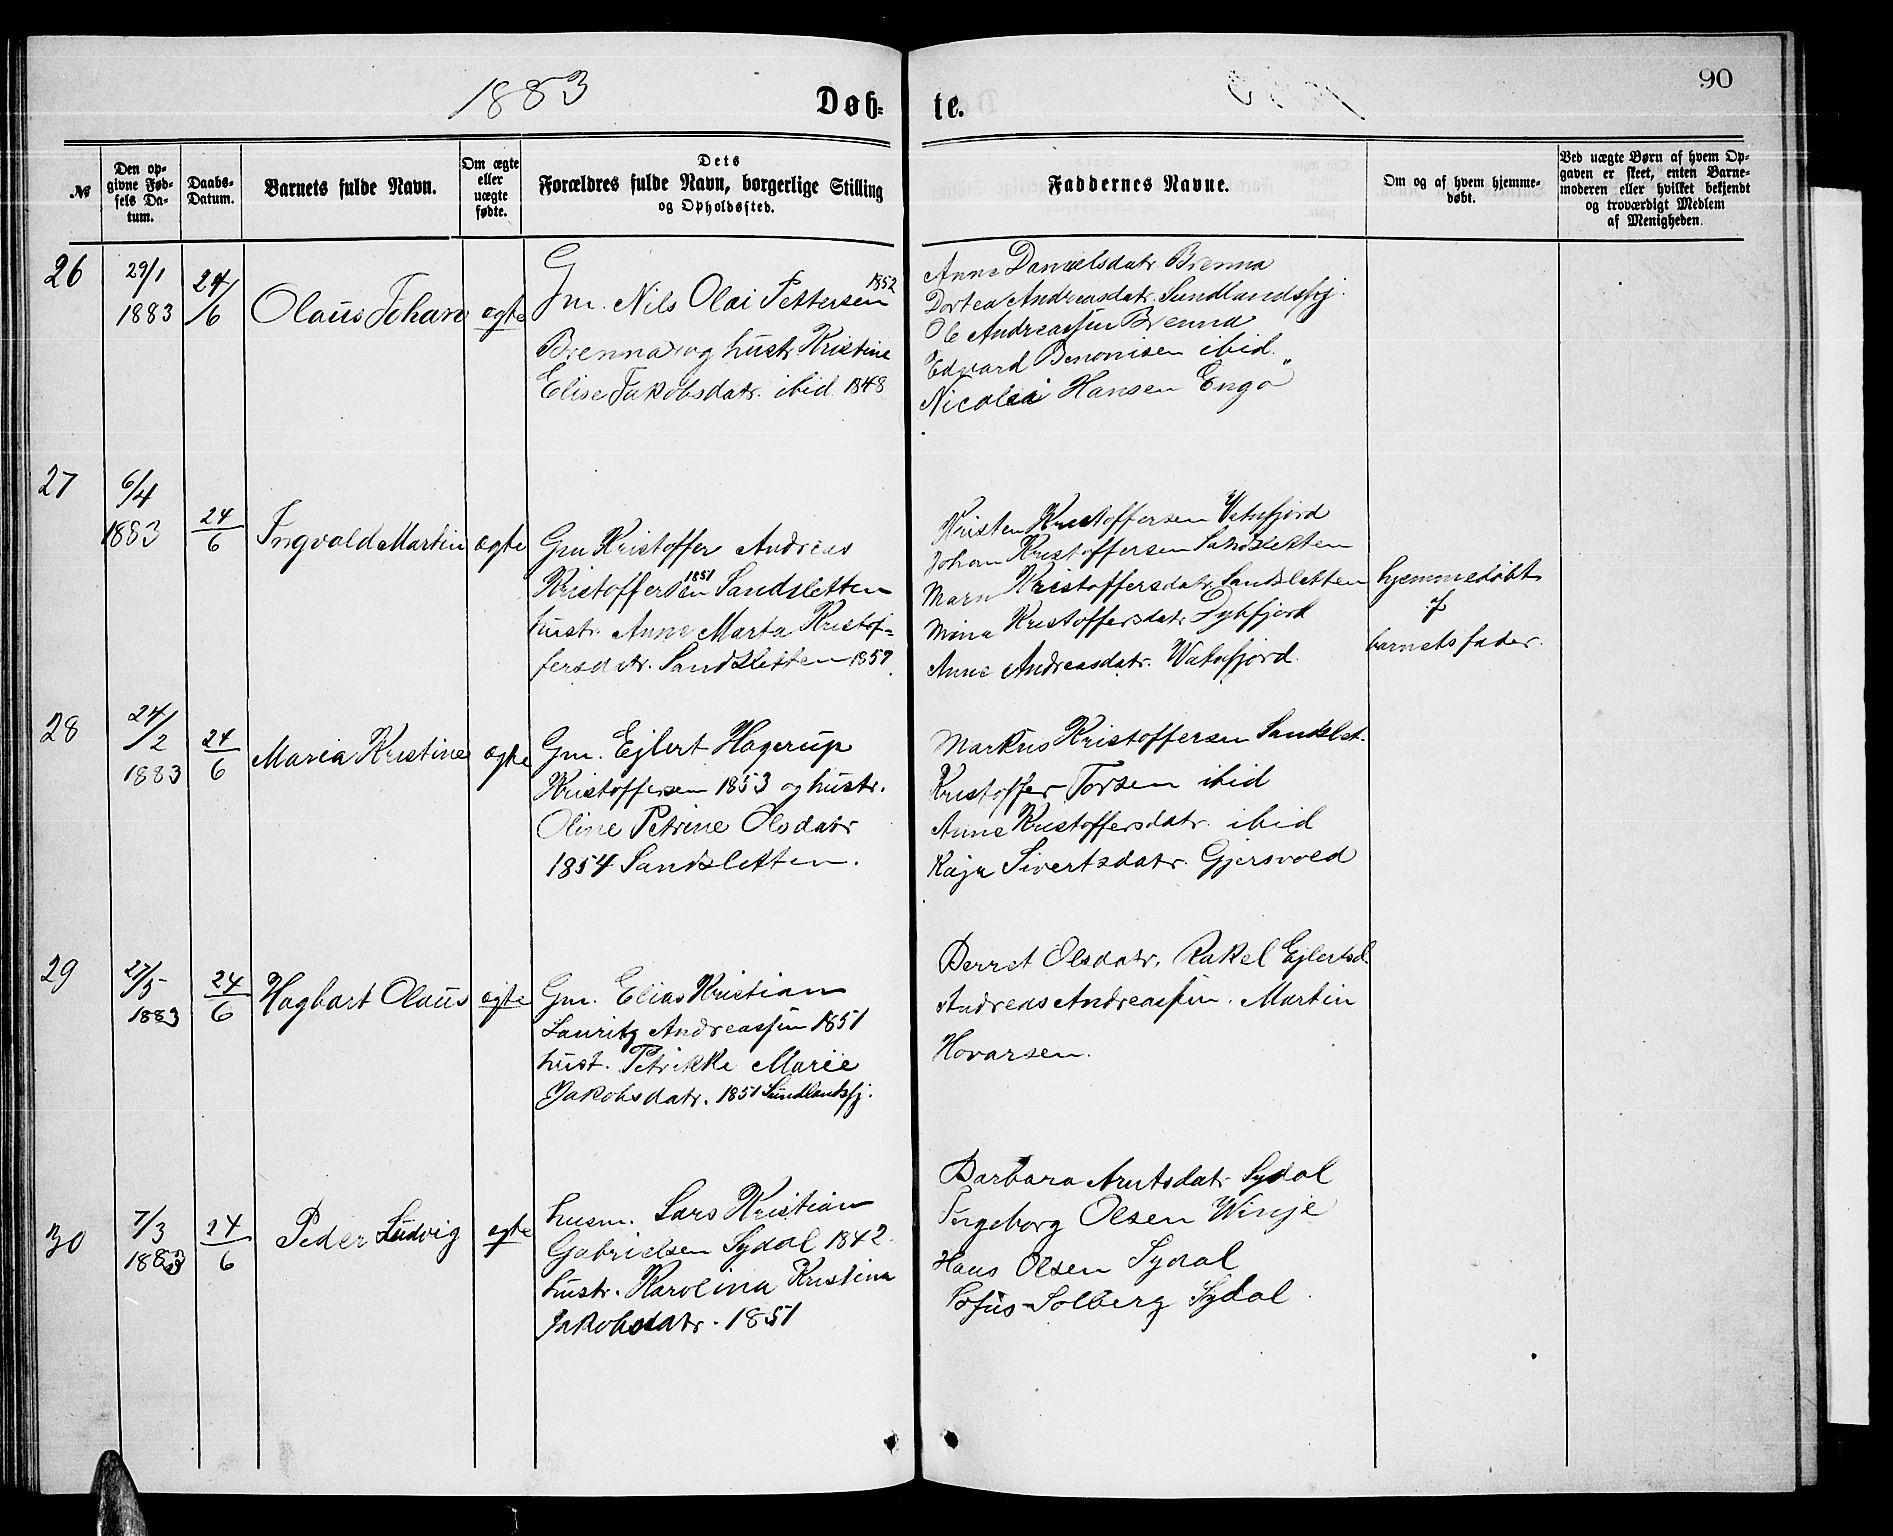 1883
Døb-
te.
90
№
Den op-
givne Fød-
sels Da-
tum.
Daabs-
Datum.
Barnets fulde Navn.
Om ægte
eller
uægte
fødte.
Dets
Forældres fulde Navn, borgerlige Stilling
og Opholdssted.
Faddernes Navne.
Om og af hvem hjemme-
døbt.
Ved uægte Børn af hvem Op-
gaven er skeet, enten Barne-
moderen eller hvilket bekjendt
og troværdigt Medlem
af Menigheden.
26
29/1
1883
24/6
Olaus Johan
ægte
Gm. Nils Olai Pettersen 1852
Brenna og hustr. Kristine
Elise Jakobsdatr. ibid 1848
Anne Danielsdatr. Brenna
Dortea Andreasdatr. Sundlandsfj.
Ole Andreassen Brenna
Edvard Benonisen ibid.
Nicolai Hansen Engø
27
6/4
1883
24/6
Ingvald Martin
ægte
Gm Kristoffer Andreas
Kristoffersen 1851 Sandsletten
hustr. Anne Marta Kristof-
fersdatr. Sandsletten 1859
Kristen Kristoffersen Vatnfjord
Johan Kristoffersen Sandsletten
Marn Kristoffersdatr. Sandsletten
Mina Kristoffersdatr. Dybfjord
Anne Andreasdatr. Watnfjord.
hjemmedøbt
af
barnets fader.
28
24/2
1883
24/6
Maria Kristine
ægte
Gm. Ejlert Hagerup
Kristoffersen 1853 og hustr.
Oline Petrine Olsdatr
1854 Sandsletten.
Markus Kristoffersen Sandslet.
Kristoffer Torsen ibid
Anne Kristoffersdatr. ibid
Kaja Sivertsdatr. Gjersvold
29
27/5
1883
24/6
Hagbart Olaus
ægte
Gm. Elias Kristian
Lauritz Andreassen 1851
hust. Petrikke Marie
Jakobsdatr. 1851 Sundlandsfj.
Berret Olsdatr. Rakel Ejlertsd.
Andreas Andreassen. Martin
Hovarsen.
30
7/3
1883
24/6
Peder Ludvig
ægte
husm. Lars Kristian
Gabrielsen Sydal 1842
hustr. Karolina Kristina
Jakobsdatr. 1851
Barbara Arntsdatr Sydal
Ingeborg Olsen Winje
Hans Olsen Sydal
Sofus Solberg Sydal.